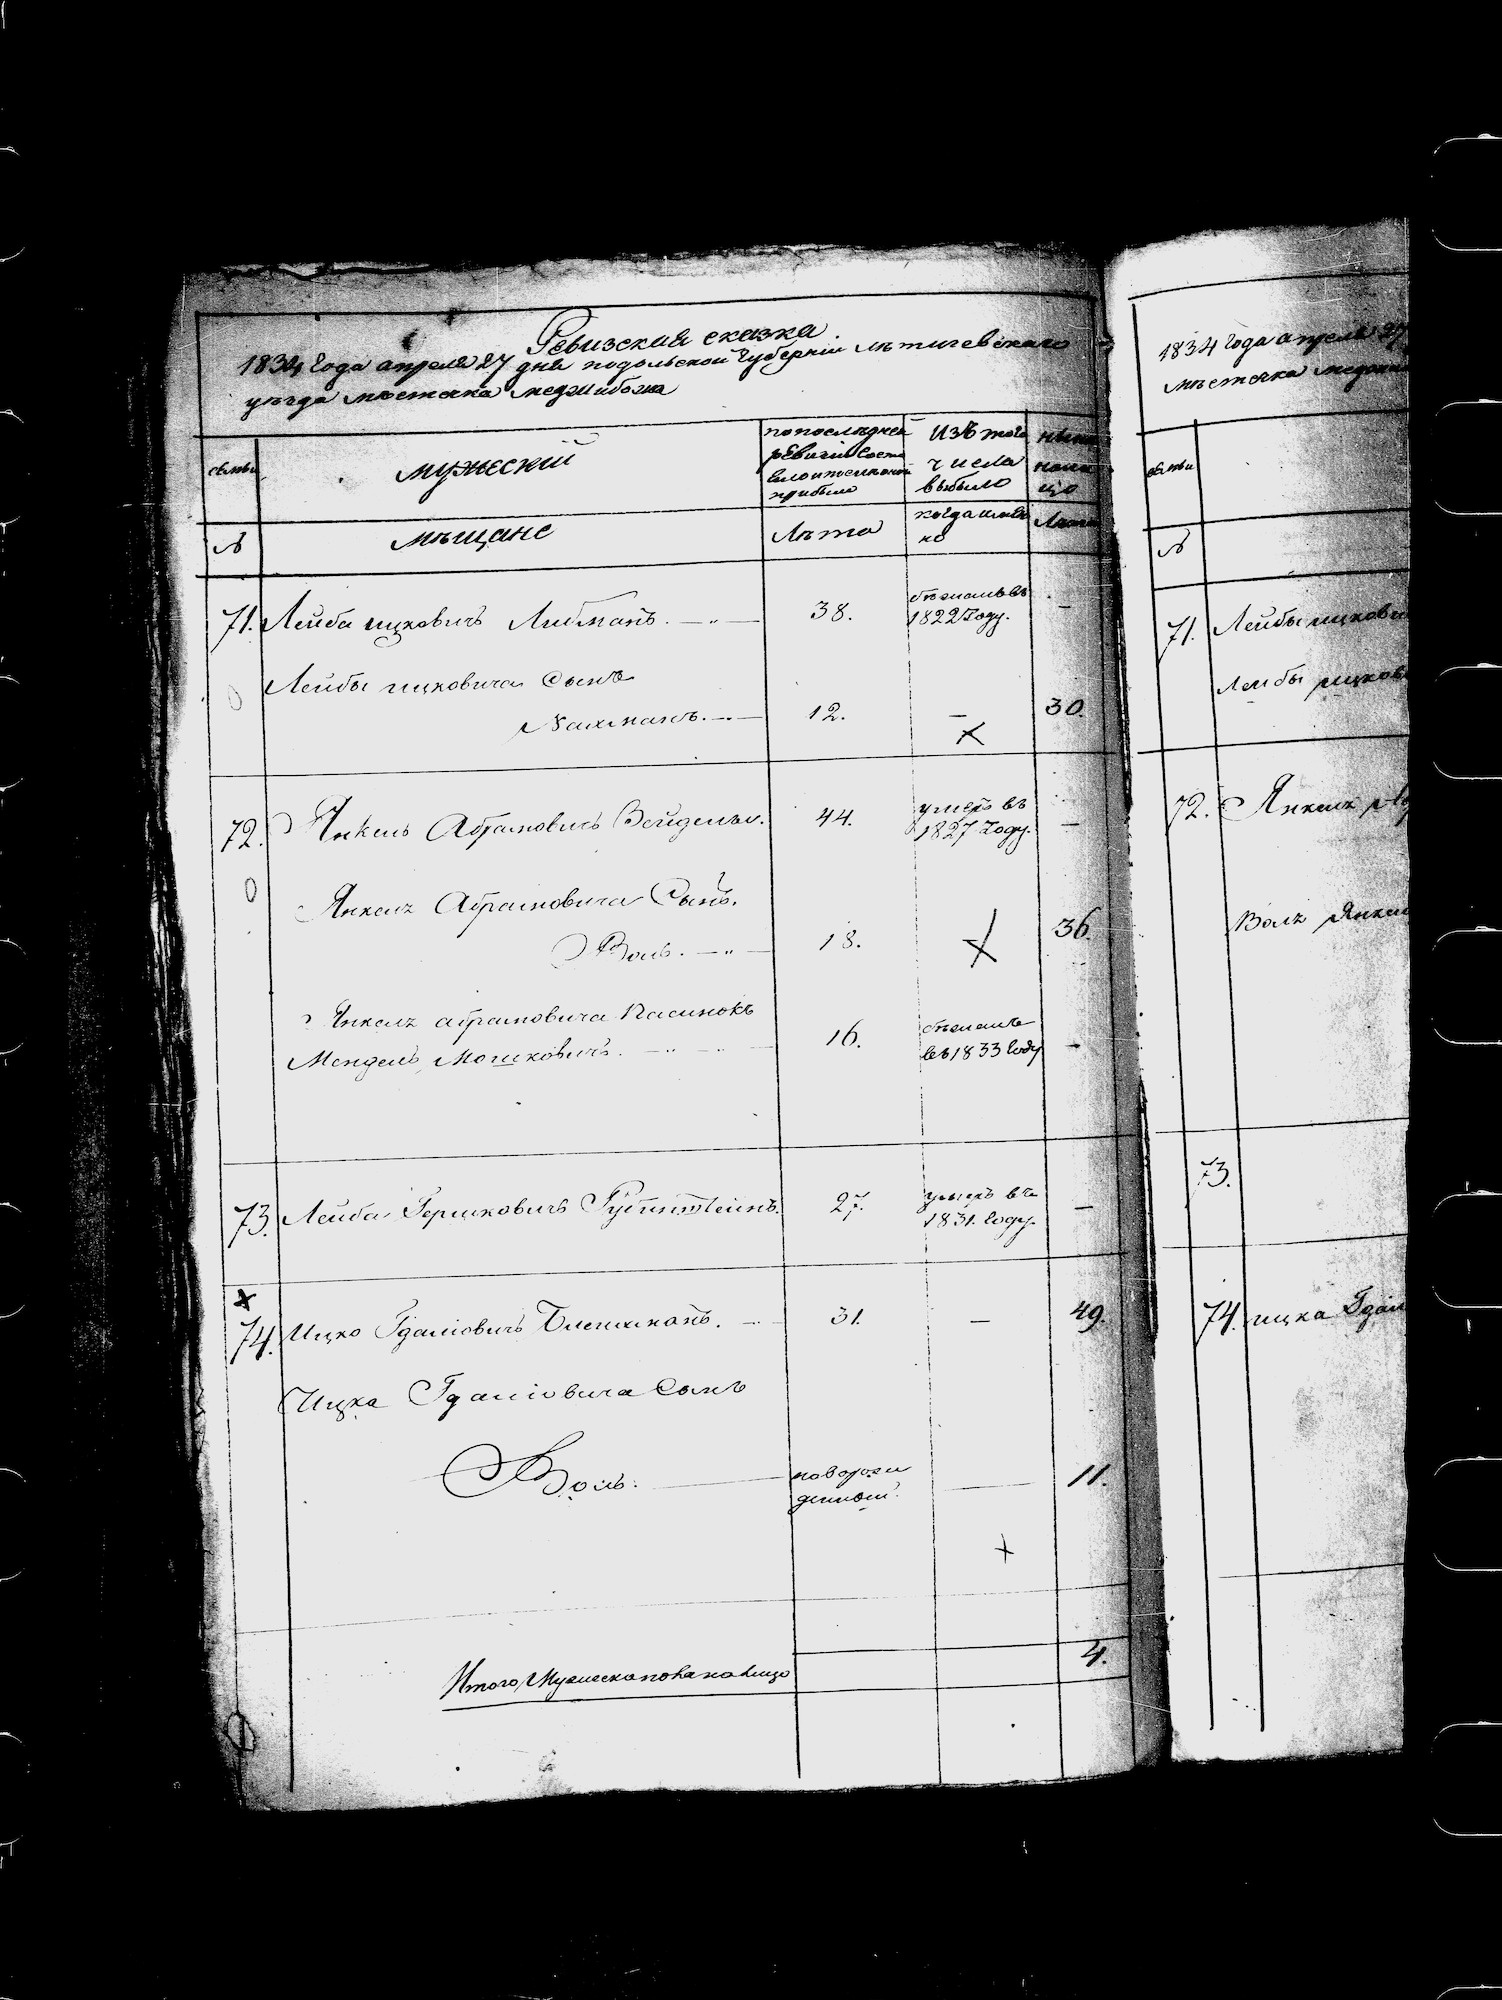 Ревизская сказка
1834 года апреля 27 дня подольской губернии летичевскаго
уезда местечка меджибожа
семьи
мужеский
по последней
ревизии состо
яло и после оной
прибыло
Изъ того
числа
выбыло
ныне
на ли
цо
№
мещане
Лета
когда имян
но
Лета
71. Лейба ицковичъ Либманъ. — „ —
38.
бежалъ въ
1822 году.
—
Лейбы ицковича сынъ
Нахманъ. — „ —
12.
—
30.
72. Янкель Абрамовичъ
44.
умеръ въ
1827 году.
—
Янкеля Абрамовича Сынъ.
Воль. — „ —
18.
36.
Янкеля абрамовича пасинокъ
Мендель Мошковичъ. — „ — „ —
16.
бежалъ
въ 1833 году
—
73. Лейба Гершковичъ Рубинштейнъ.
27.
умеръ въ
1831. году.
—
74. Ицко Гдаліовичъ
31.
—
49.
Ицка Гдаліовича сынъ
Воль.
новорож
денный.
—
11.
Итого Мужеска пола на лицо
4.
1834 года апреля 27
местечка меджи
семьи
№
71. Лейбы ицкови
Лейбы ицков
72. Янкеля Аб
Воля Янкел
73.
74. ицка Гдалі